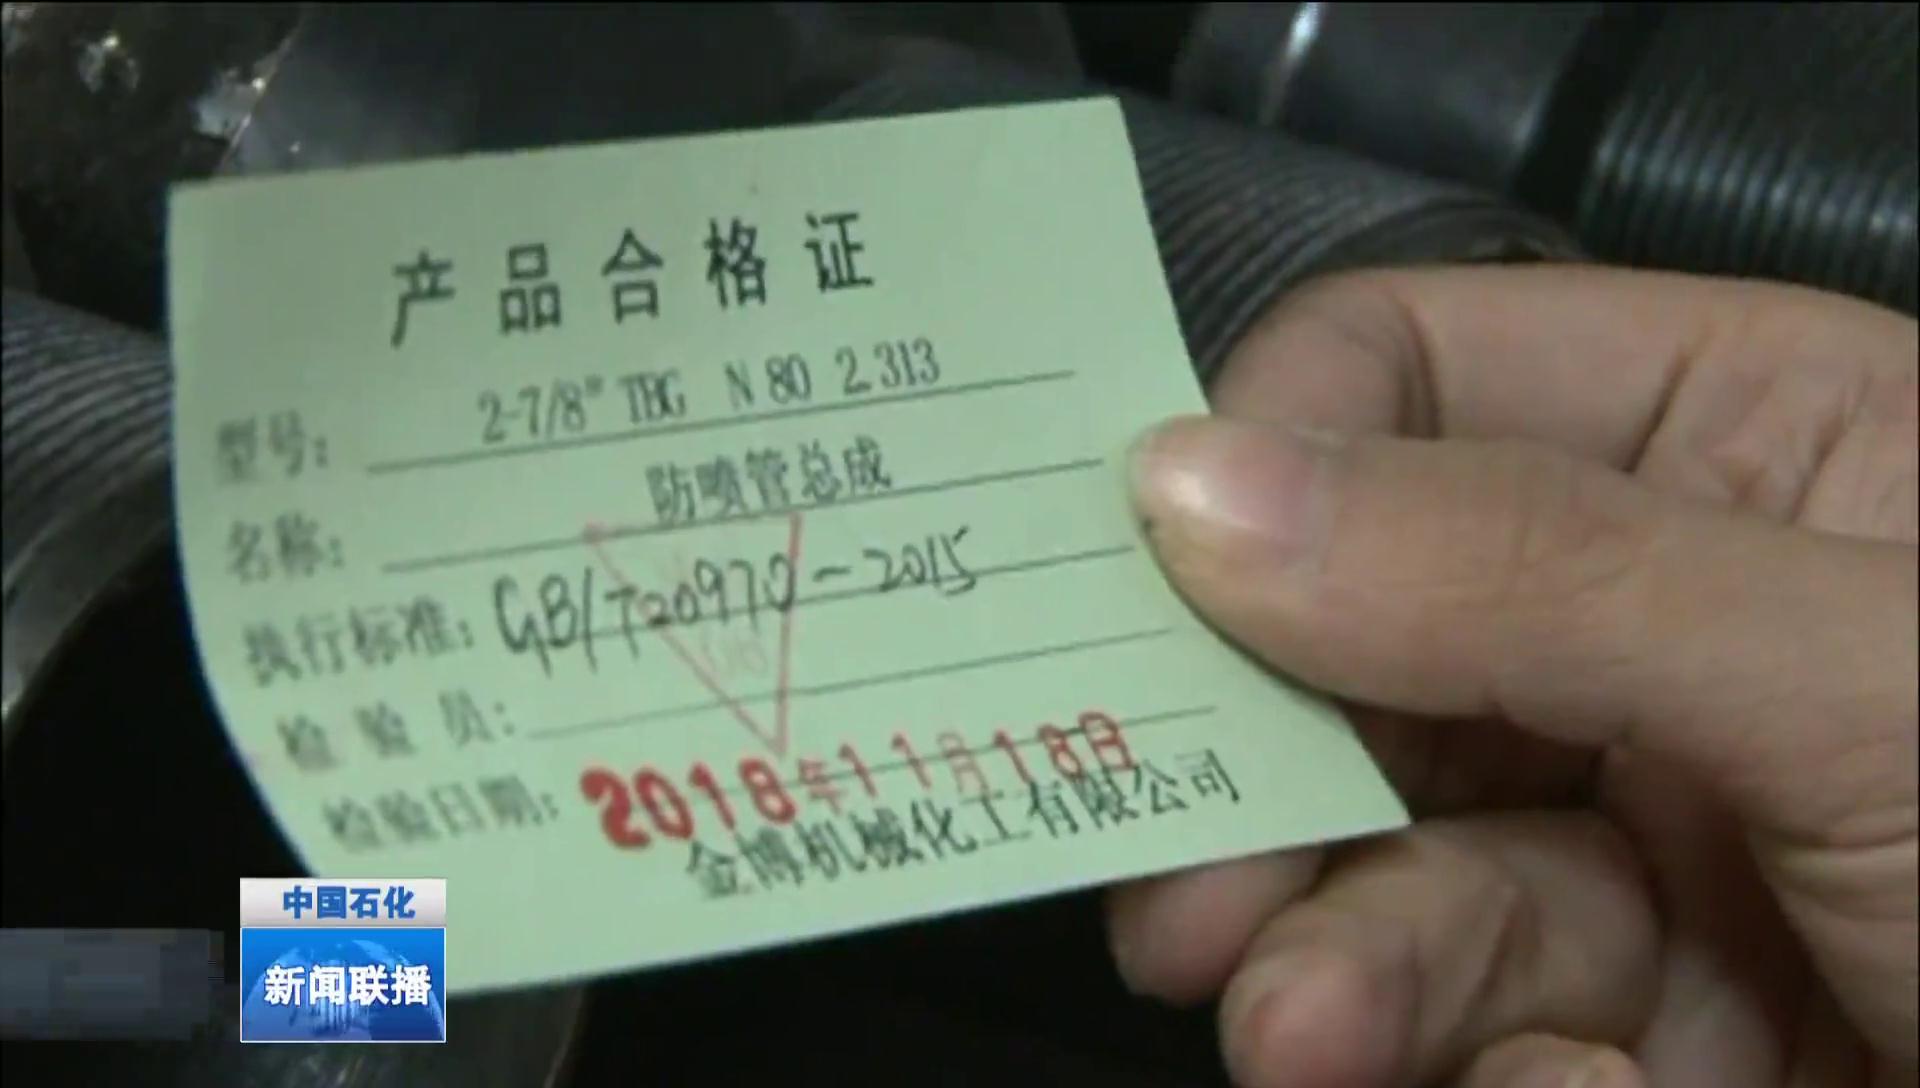 产品合格证
型号: 2-7/8" TBG N80 2.313
名称: 防喷管总成
执行标准: GB/T20970-2015
检验员:
检验日期: 2018年11月18日
金博机械化工有限公司
中国石化
新闻联播